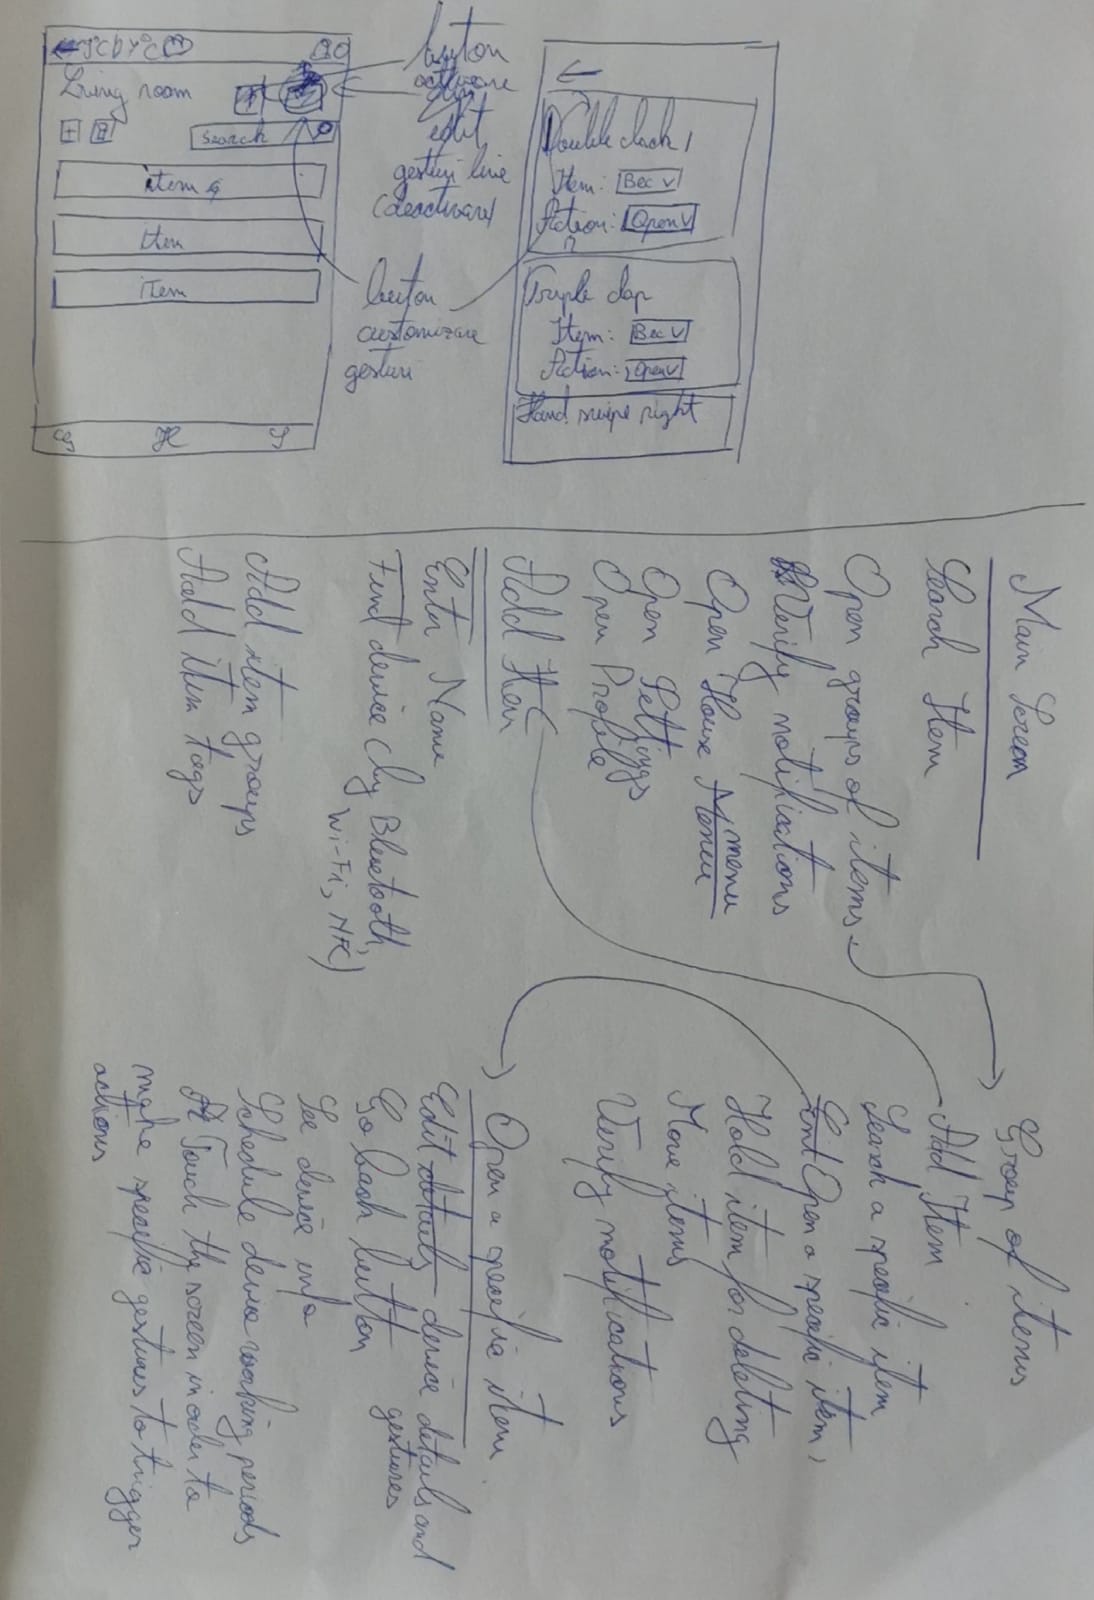 Living room
Search
item
Item
item
buton
activare
edit
gesturi
(deactivare)
buton
customizare
gesturi
Item: Bec v
Action: Open v
Triple clap
Item: Bec v
Action: Open v
Hand swipe right
Main Screen
Search Item
Open groups of items
Verify notifications
Open House Menu menu
Open Settings
Open Profile
Add Item
Enter Name
Find device (by Bluetooth,
Wi-Fi, NFC)
Add item groups
Add item tags
Group of items
Add Item
Search a specific item
Open a specific item
Hold item for deleting
Move items
Verify notifications
Open a specific item
Edit details device details and
gestures
Go back button
See device info
Schedule device working periods
Touch the screen in order to
make specific gestures to trigger
actions